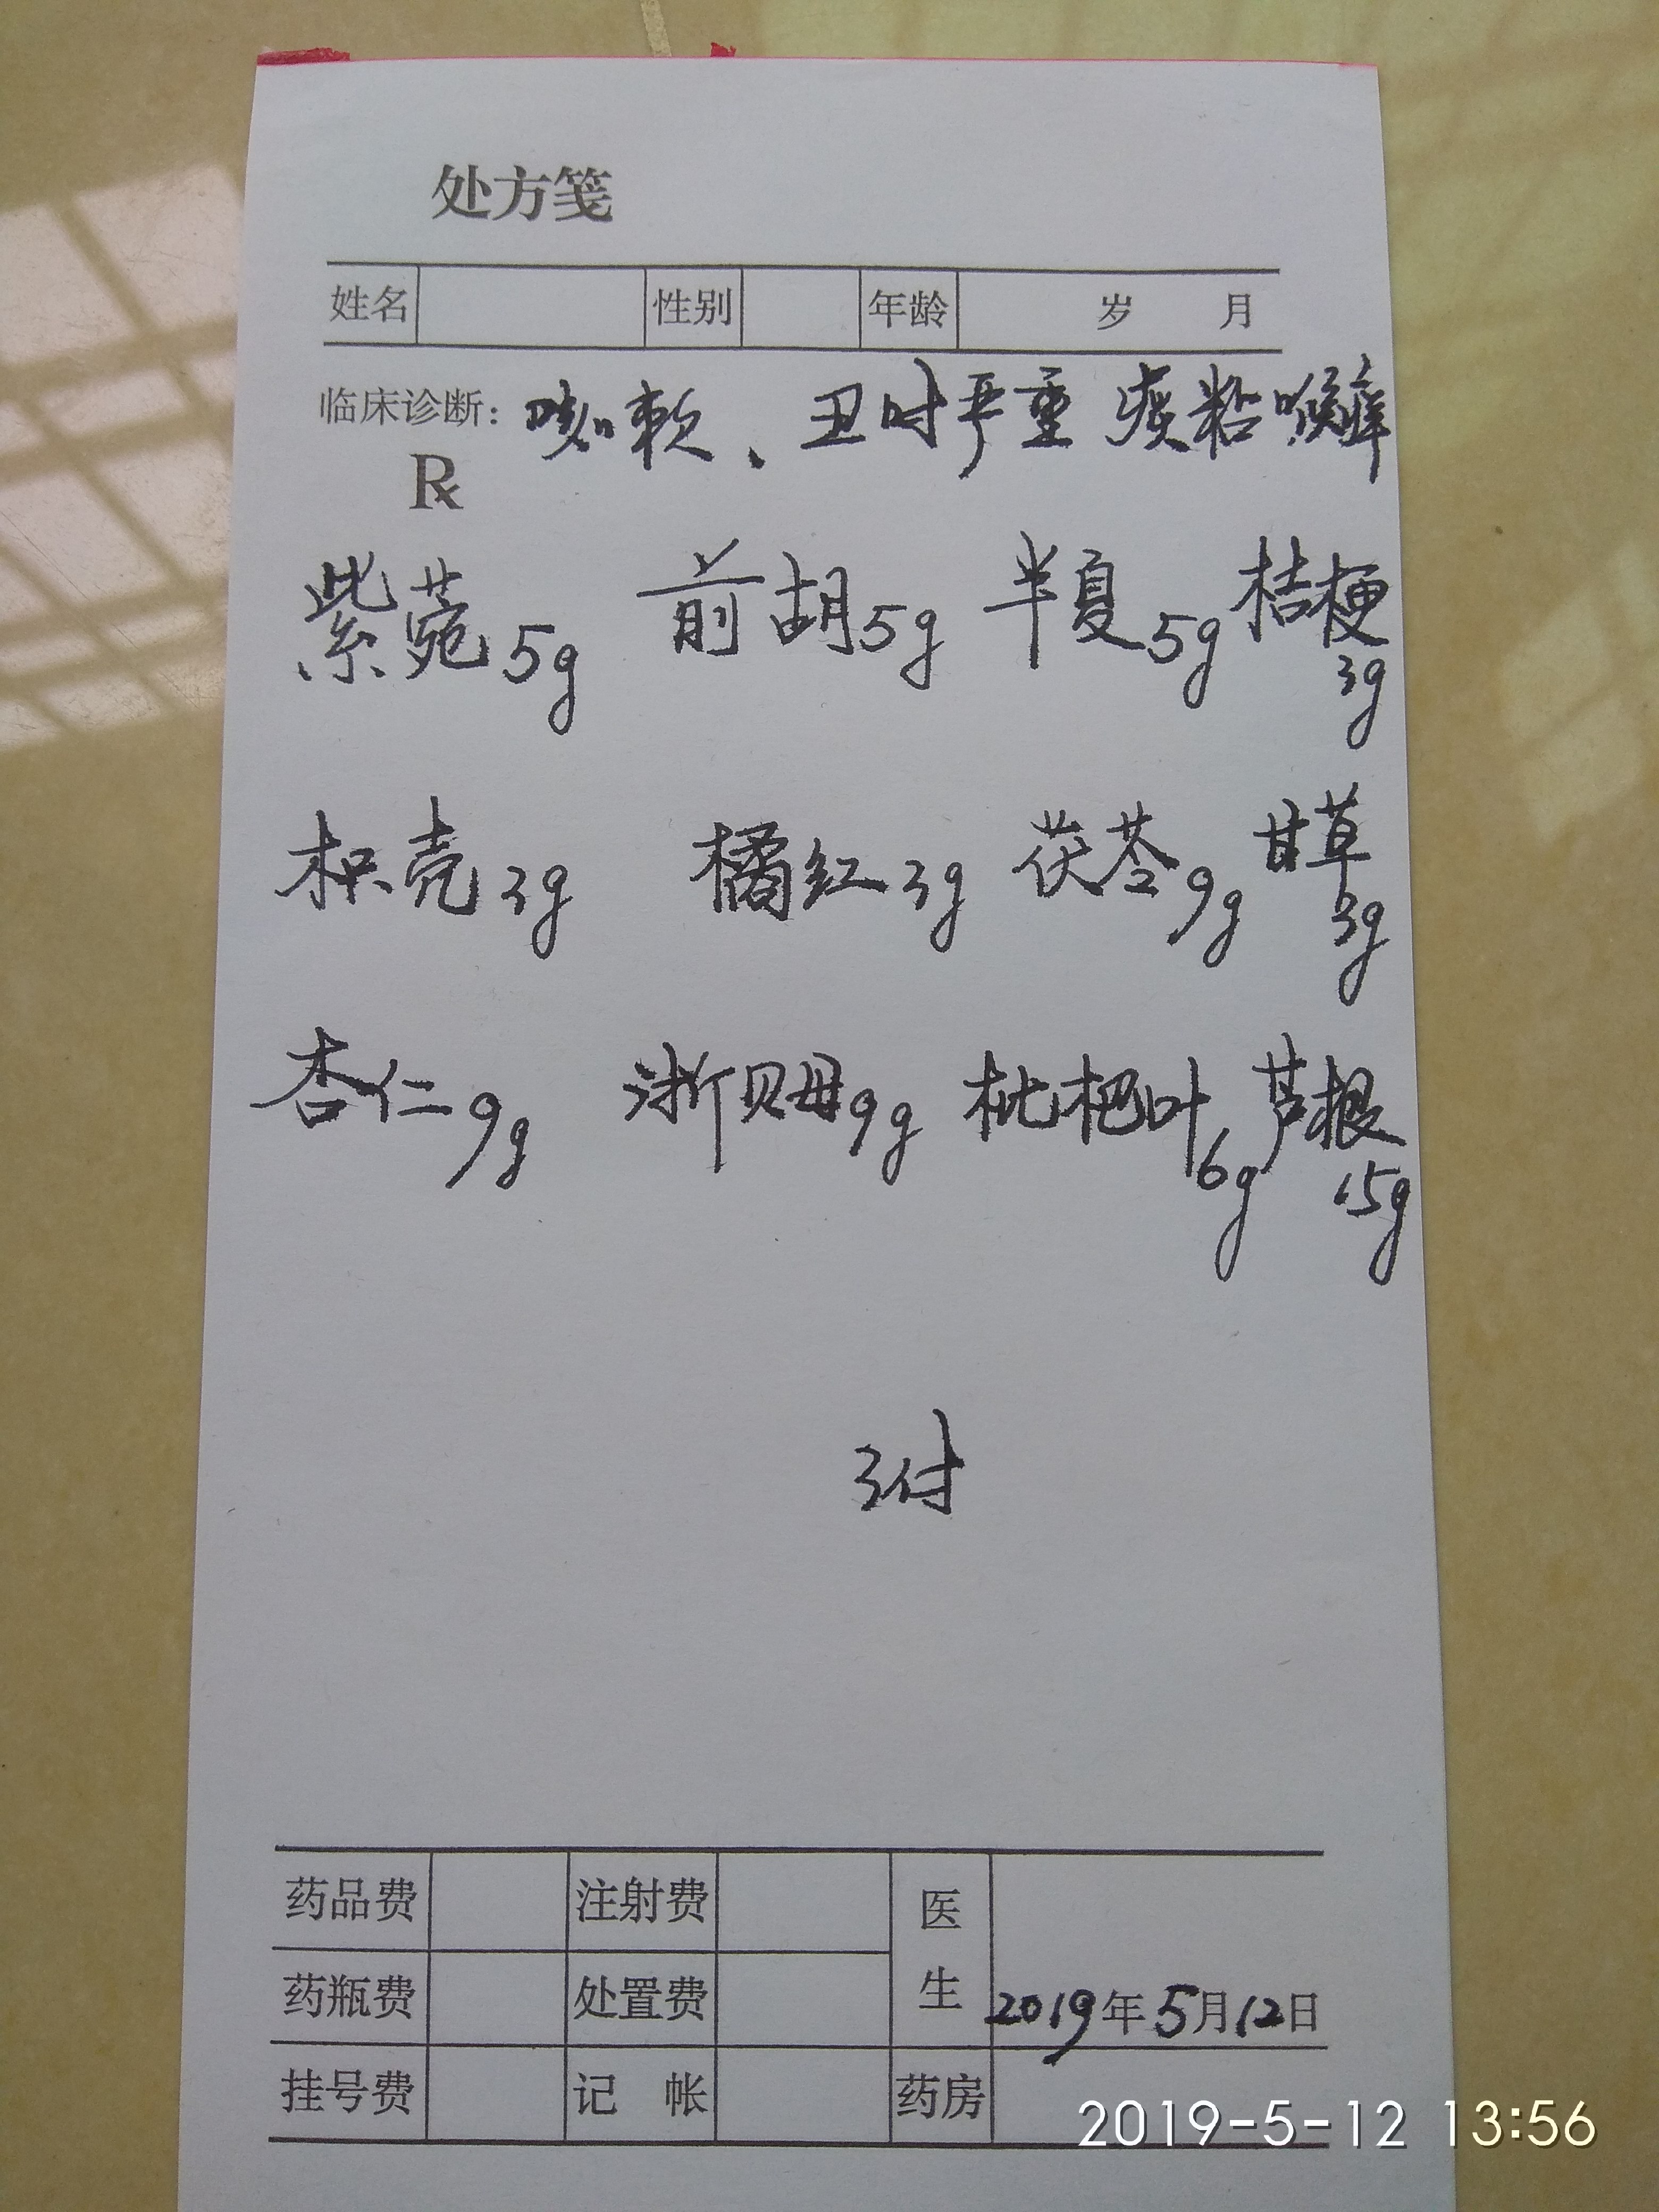 处方笺
姓名 性别 年龄 岁 月
临床诊断: 咳嗽、丑时严重 痰粘喉痒
R
紫菀5g 前胡5g 半夏5g 桔梗3g
枳壳3g 橘红3g 茯苓9g 甘草3g
杏仁9g 浙贝母9g 枇杷叶6g 芦根15g
3付
药品费 注射费 医生
药瓶费 处置费 2019年5月12日
挂号费 记 帐 药房
2019-5-12 13:56